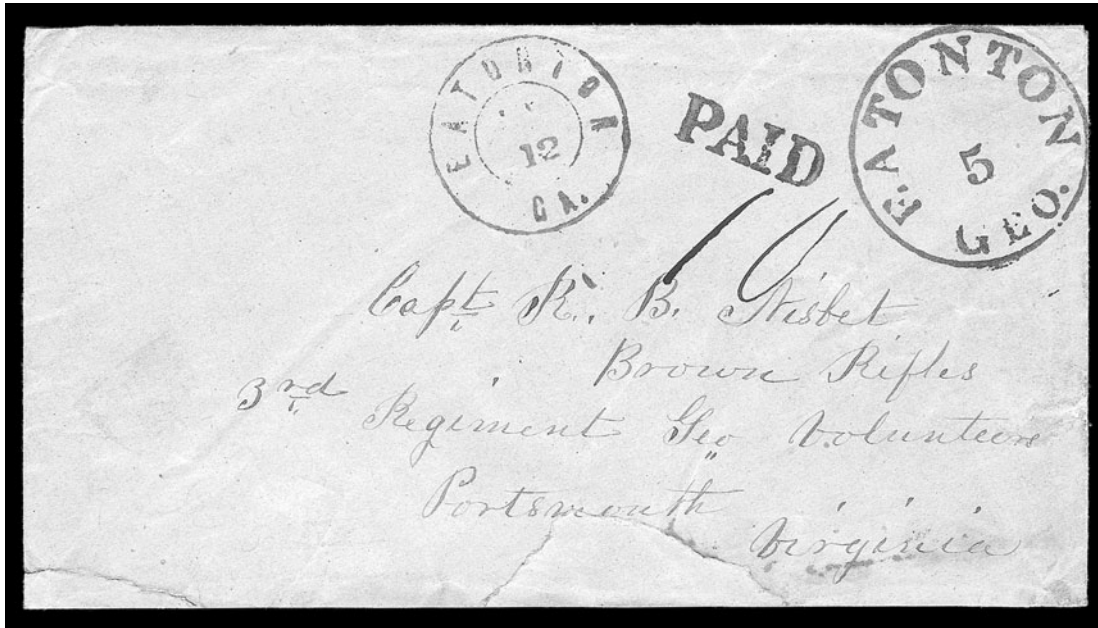 EATONTON
12
GA.
PAID
EATONTON
5
GEO.
10
Capt R. B. Nisbet
Brown Rifles
3rd Regiment Geo Volunteers
Portsmouth
Virginia